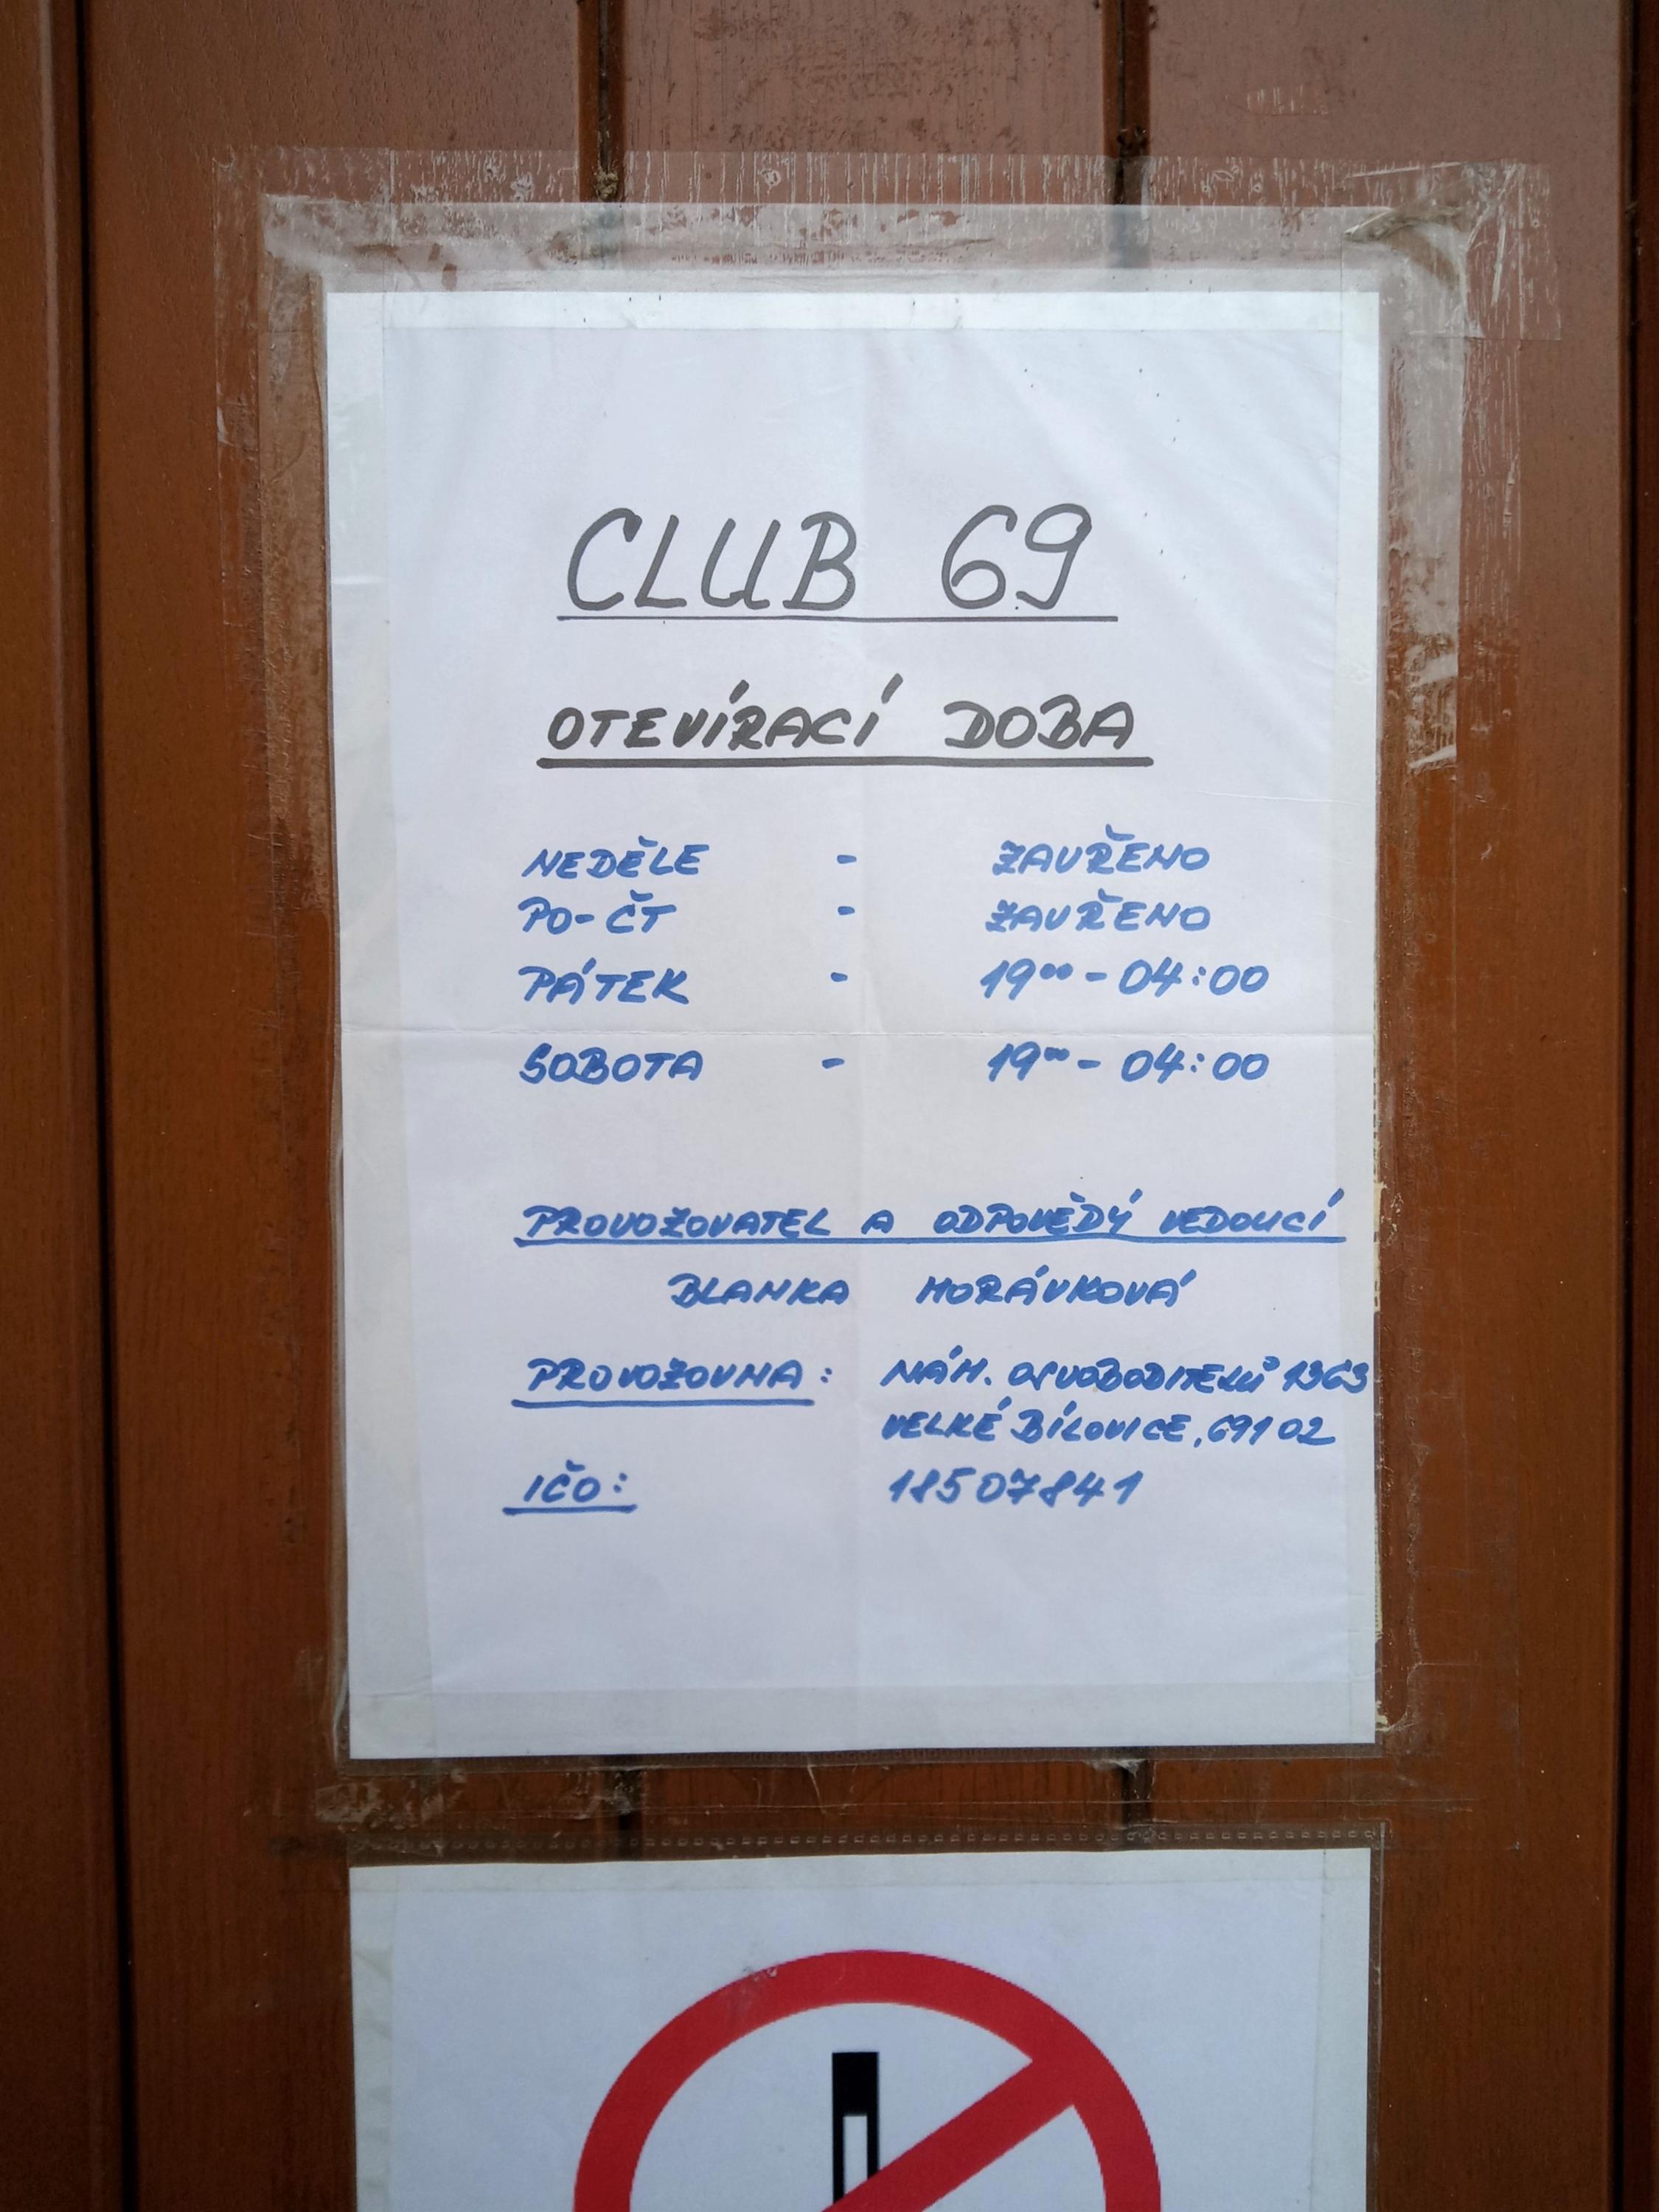 CLUB 69
OTEVÍRACÍ DOBA
NEDĚLE - ZAVŘENO
PO-ČT - ZAVŘENO
PÁTEK - 19⁰⁰ - 04:00
SOBOTA - 19⁰⁰ - 04:00
PROVOZOVATEL A ODPOVĚDÝ VEDOUCÍ
BLANKA MORÁVKOVÁ
PROVOZOVNA: NÁM. OSVOBODITELŮ 1363
VELKÉ BÍLOVICE, 691 02
IČO: 18507841